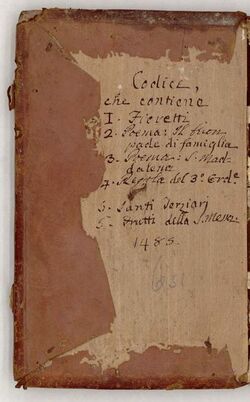 Codice,
che contiene
1. Fioretti
2. Poema: Il buon
pade di famiglia
3. Poema: S. Mad-
dalena
4. Regola del 3º Ord.e
5. Santi
6. Frutti della S. Messa
1485.